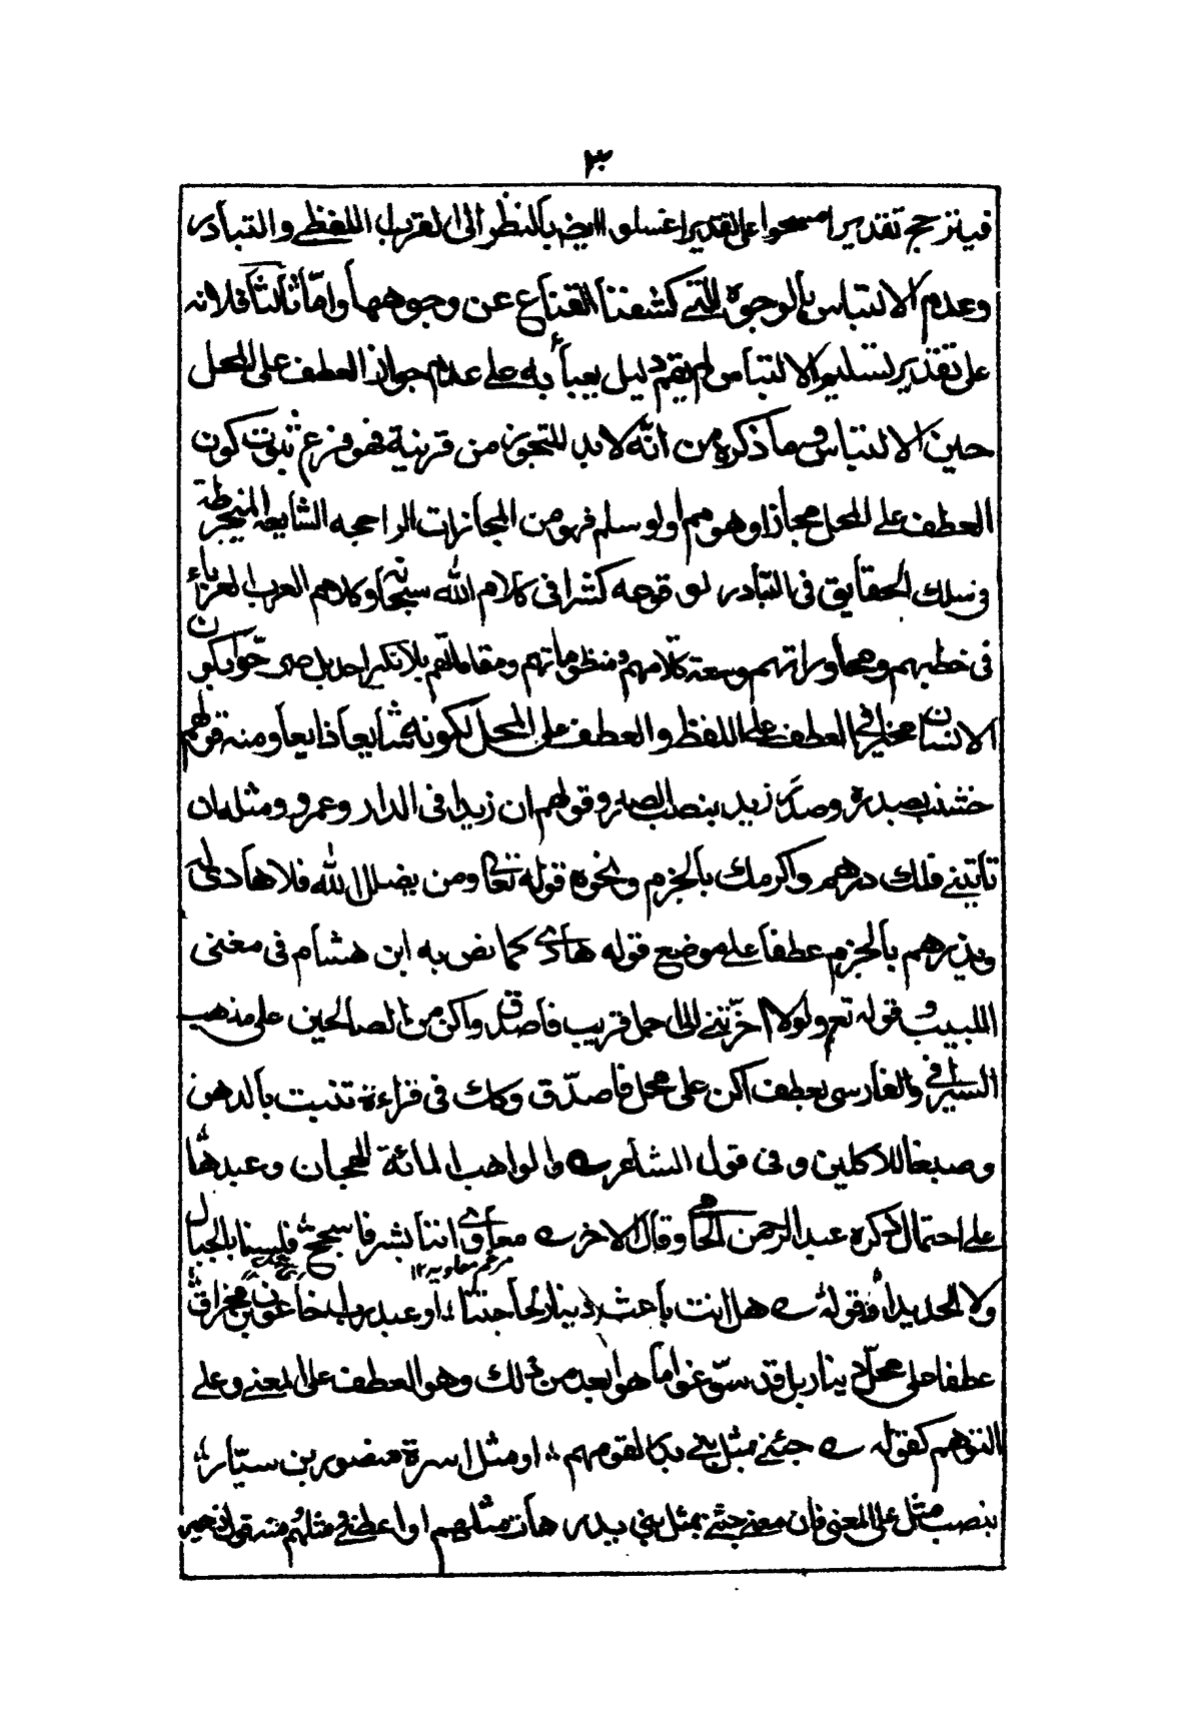 ٣
فيترجح تقدير امسحوا على تقدير اغسلوا ايضا بالنظر الى القرب اللفظي والتبادر
وعدم الالتباس بالوجوه التي كشفنا القناع عن وجوهها واما ثالثا فلانه
على تقدير تسليم الالتباس لم يقم دليل يعبأ به على عدم جواز العطف على المحل
حين الالتباس وما ذكره من انه لا بد للتجوز من قرينة فهو فرع ثبوت كون
العطف على المحل مجازا وهو مم اولو سلم فهو من المجازات الراجحه الشايعه المنخرطة
في سلك الحقايق في التبادر لو قوعه كثيرا في كلام الله سبحانه وكلام العرب العرباء
في خطبهم ومحاوراتهم وسعة كلامهم ومنظوماتهم ومقاماتهم بلا نكير احد بل صرحوا بكون
الانسان مخيرا في العطف على اللفظ والعطف على المحل لكونه شايعا ذايعا ومنه قولهم
خشنت بصدره وصدر زيد بنصب الصدر وقولهم ان زيدا في الدار وعمرو ومثل ان
تأتيني فلك درهم واكرمك بالجزم ونحوه قوله تعالى ومن يضلل الله فلا هادى له
ويذرهم بالجزم عطفا على موضع قوله هادى كما نص به ابن هشام في مغنى
اللبيب وقوله تعم ولولا اخرتنى الى اجل قريب فاصدق واكن من الصالحين على مذهب
السيرافي والفارسى بعطف اكن على محل فاصدق وكك في قراءة تنبت بالدهن
وصبغا للاكلين وفي قول الشاعر ے والواهب المائة الهجان وعبدها
على احتمال ذكره عبد الرحمن الجامى وقال الاخر ے معاوى اننا بشر فاسجح فلسنا بالجبال
مرخم معاويه ١٢
ولا الحديدا وقوله ے هل انت باعث دينار لحاجتنا ؛ او عبد رب اخا عون بن مخراق
عطفا على محل دينار بل قد سوغوا ما هو ابعد من ذلك وهو العطف على المعنى وعلى
التوهم كقوله ے جئنى بمثل بنى بدر لقومهم ؛ او مثل اسرة منصور بن سيار ؛
بنصب مثل على المعنى فان معنى جئنى بمثل بني بدر هات مثلهم او اعطنى مثلهم منه قوله